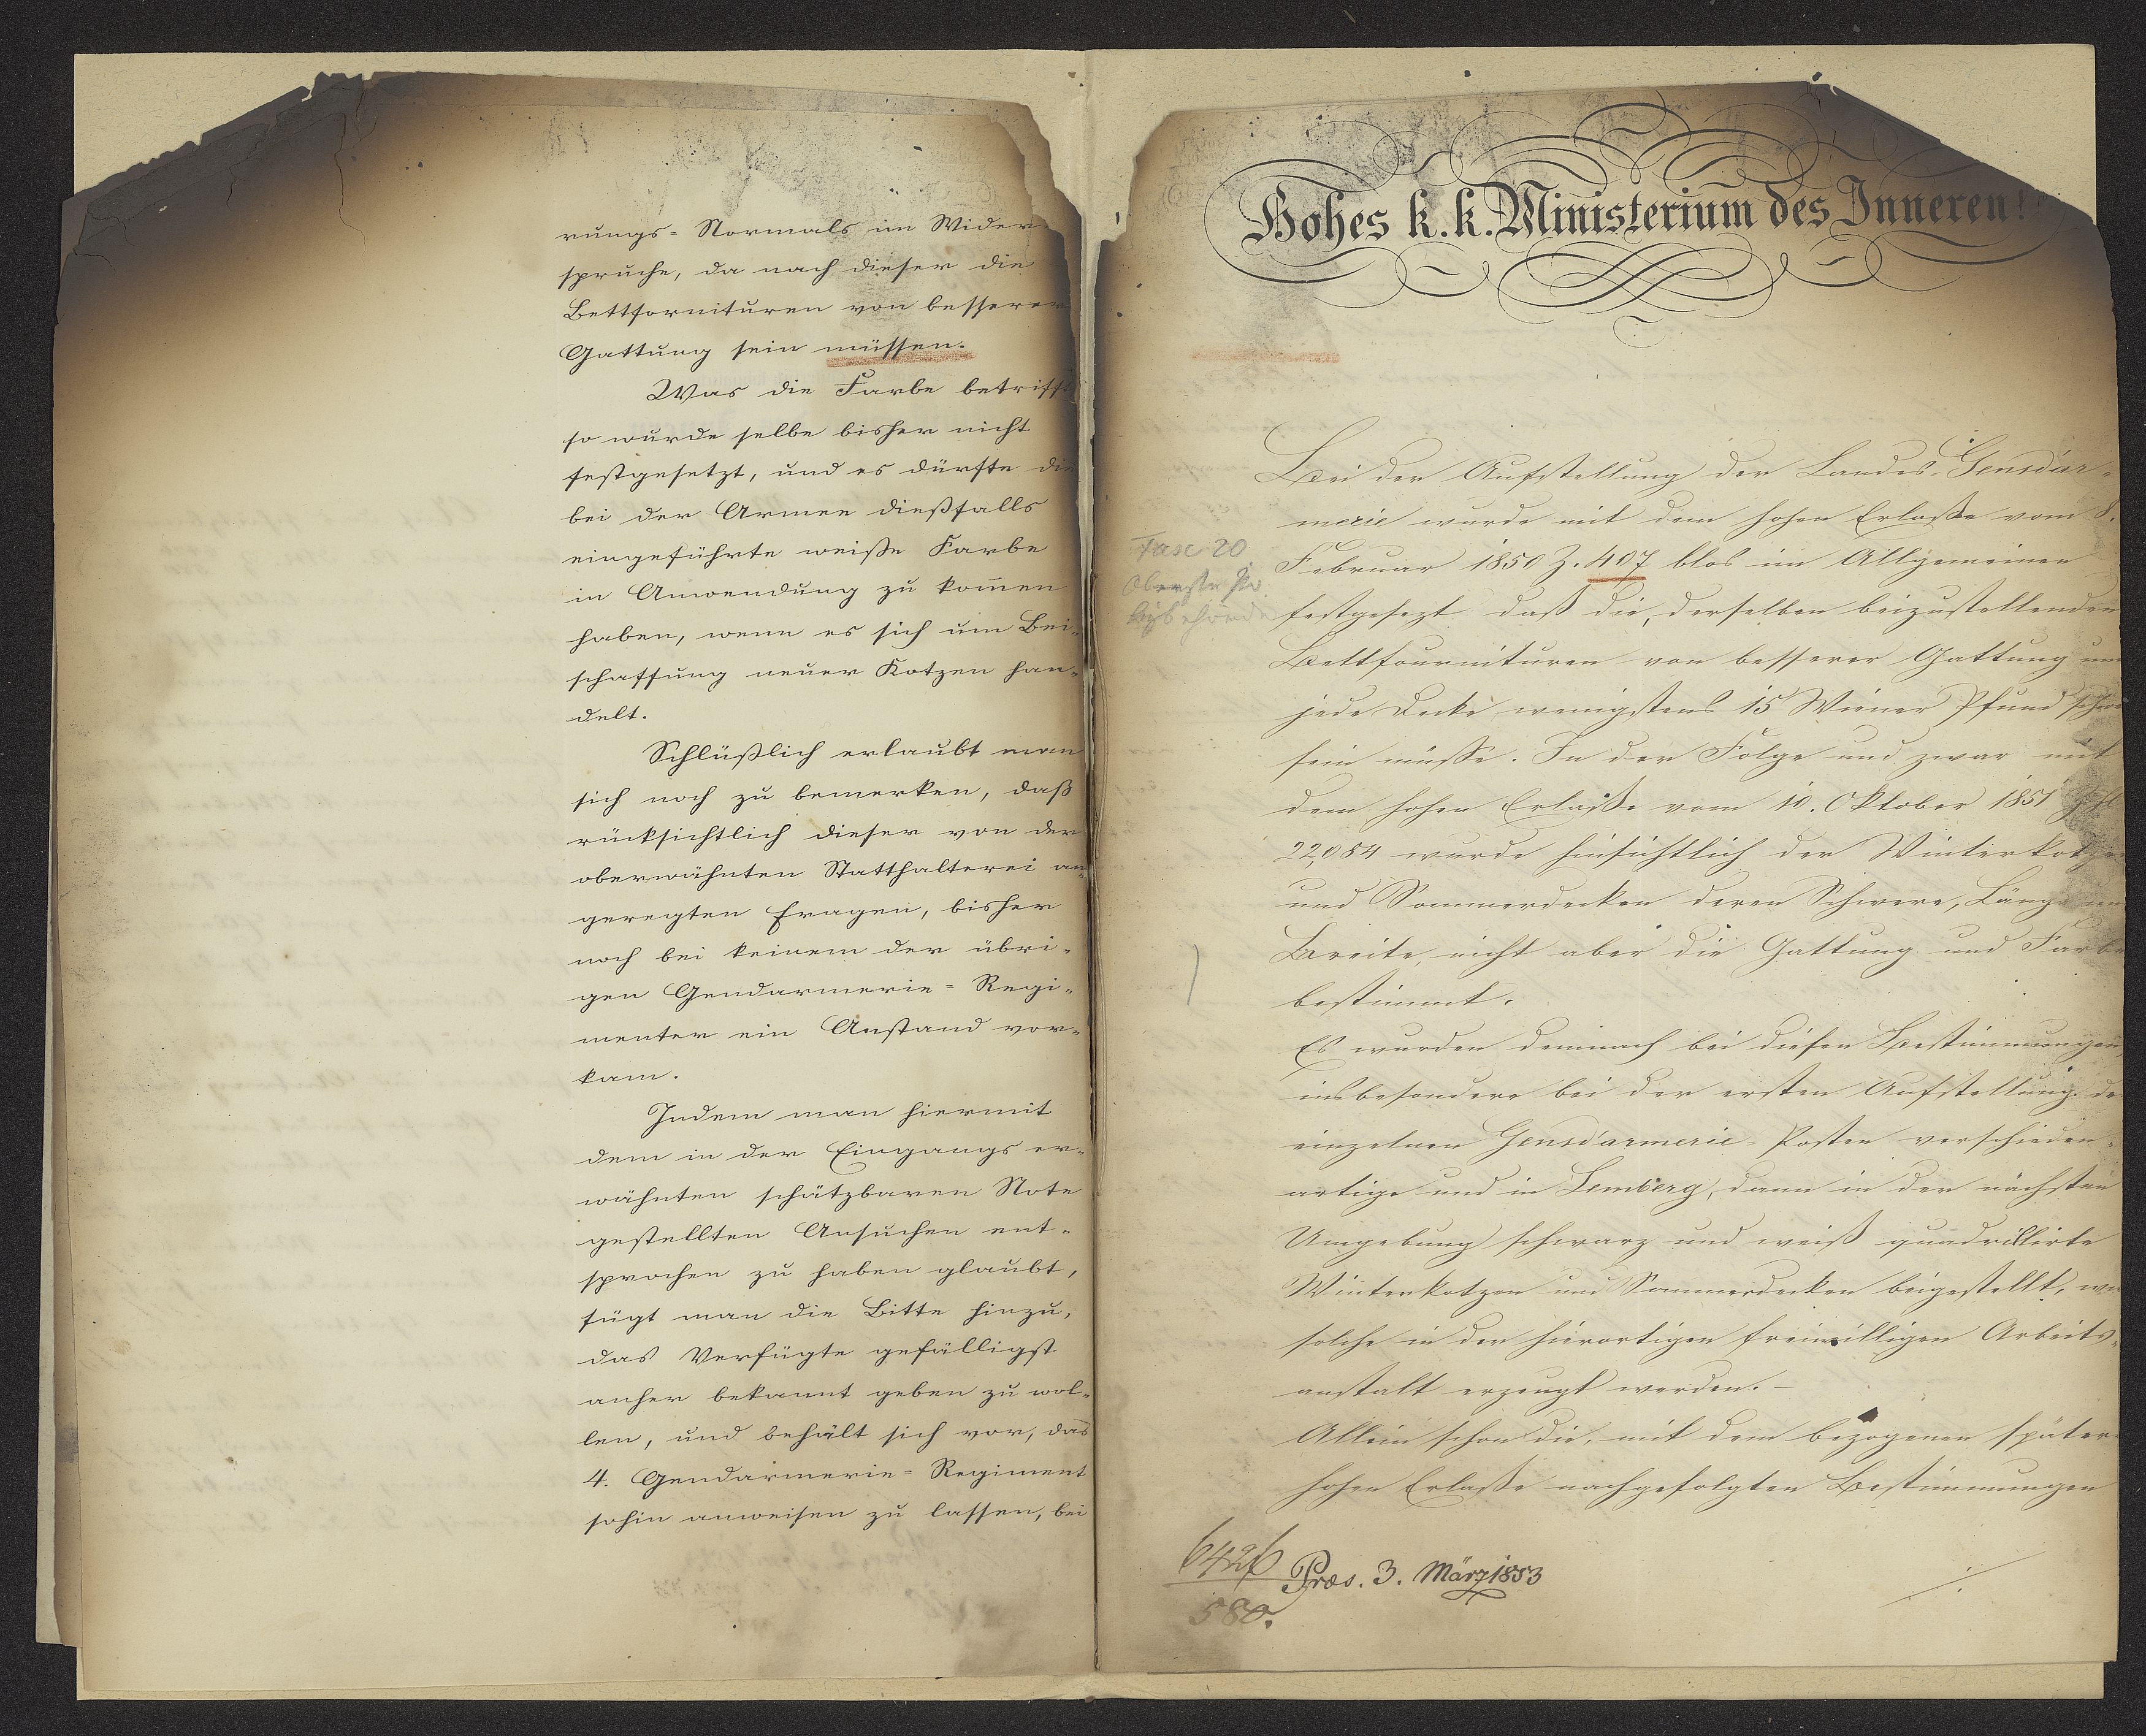 rungs- Normals im Wider
spruche, da nach dieser die
Bettfornituren von besserer
Gattung sein müssen.
Was die Farbe betrifft
so wurde selbe bisher nicht
festgesetzt, und es dürfte die
bei der Armee dießfalls
eingeführte weiße Farbe
in Anwendung zu kom̄en
haben, wenn es sich um Bei-
schaffung neuer Kotzen han-
delt.
Schlüßlich erlaubt man
sich noch zu bemerken, daß
rücksichtlich dieser von der
oberwähnten Statthalterei an-
geregten Fragen, bisher
noch bei keinem der übri-
gen Gendarmerie- Regi-
menter ein Anstand vor-
kam.
Indem man hiermit
dem in der Eingangs er-
wähnten schätzbaren Note
gestellten Ansuchen ent-
sprochen zu haben glaubt,
fügt man die Bitte hinzu,
das Verfügte gefälligst
anher bekannt geben zu wol-
len, und behält sich vor, das
4. Gendarmerie- Regiment
sohin anweisen zu lassen, bei
Hohes k. k. Ministerium des Inneren!
Bei der Aufstellung der Landes-Gensdar-
merie wurde mit dem hohen Erlaße vom 8.
Februar 1850 Z. 407 blos im Allgemeinen
festgesezt daß die, derselben beizustellenden
Bettfournituren von besserer Gattung und
jede Decke wenigstens 15 Wiener Pfund schwer
sein müsse. In der Folge und zwar mit
dem hohen Erlaße vom 10. Oktober 1851
22084 wurde hinsichtlich der Winterkotzen
und Sommerdecken deren Schwere, Länge und
Breite, nicht aber die Gattung und Farbe
bestimmt.
Es wurden demnach bei diesen Bestimmungen,
insbesondere bei der ersten Aufstellung der
einzelnen Gensdarmerie-Posten verschieden-
artige und in Lemberg, dann in der nächsten
Umgebung schwarz und weiß quadrillirte
Winterkotzen und Sommerdecken beigestellt, wie
solche in der hierortigen freiwilligen Arbeits-
anstalt erzeugt werden. -
Allein schon die, mit dem bezogenen später
hohen Erlaße nachgefolgten Bestimmungen
Fasc 20
Oberste
6426
580.
Præs. 3. März 1853